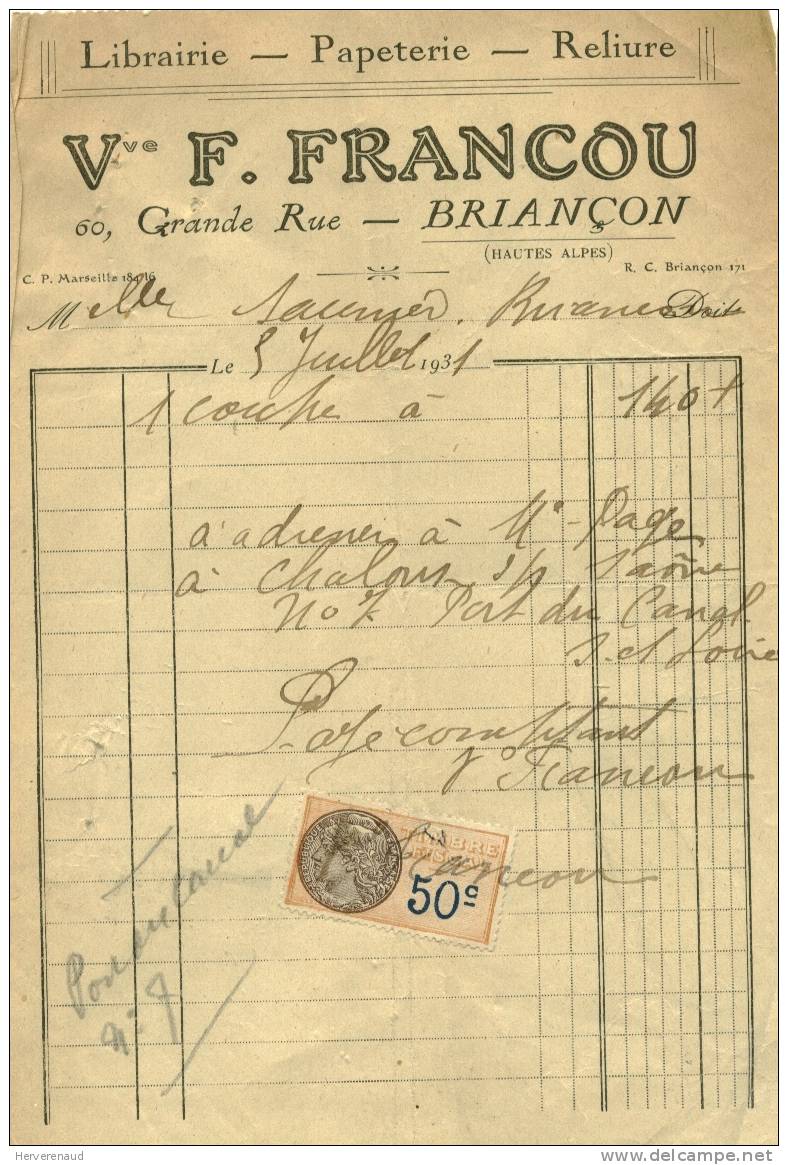 Librairie — Papeterie — Reliure
Vve F. FRANCOU
60, Grande Rue — BRIANÇON
(HAUTES ALPES)
C. P. Marseille 184-16
R. C. Briançon 171
Melle Saunier, Doit
Le 5 Juillet 1931
1 coupe à 140 +
à adresser à Me Page
à Chalons s/ Saône
No 7 Port du Canal
S. et Loire
Payé comptant
Ve Francou
TIMBRE
FISCAL
50c
Francou
Port du Canal
No 7
Herverenaud
www.delcampe.net